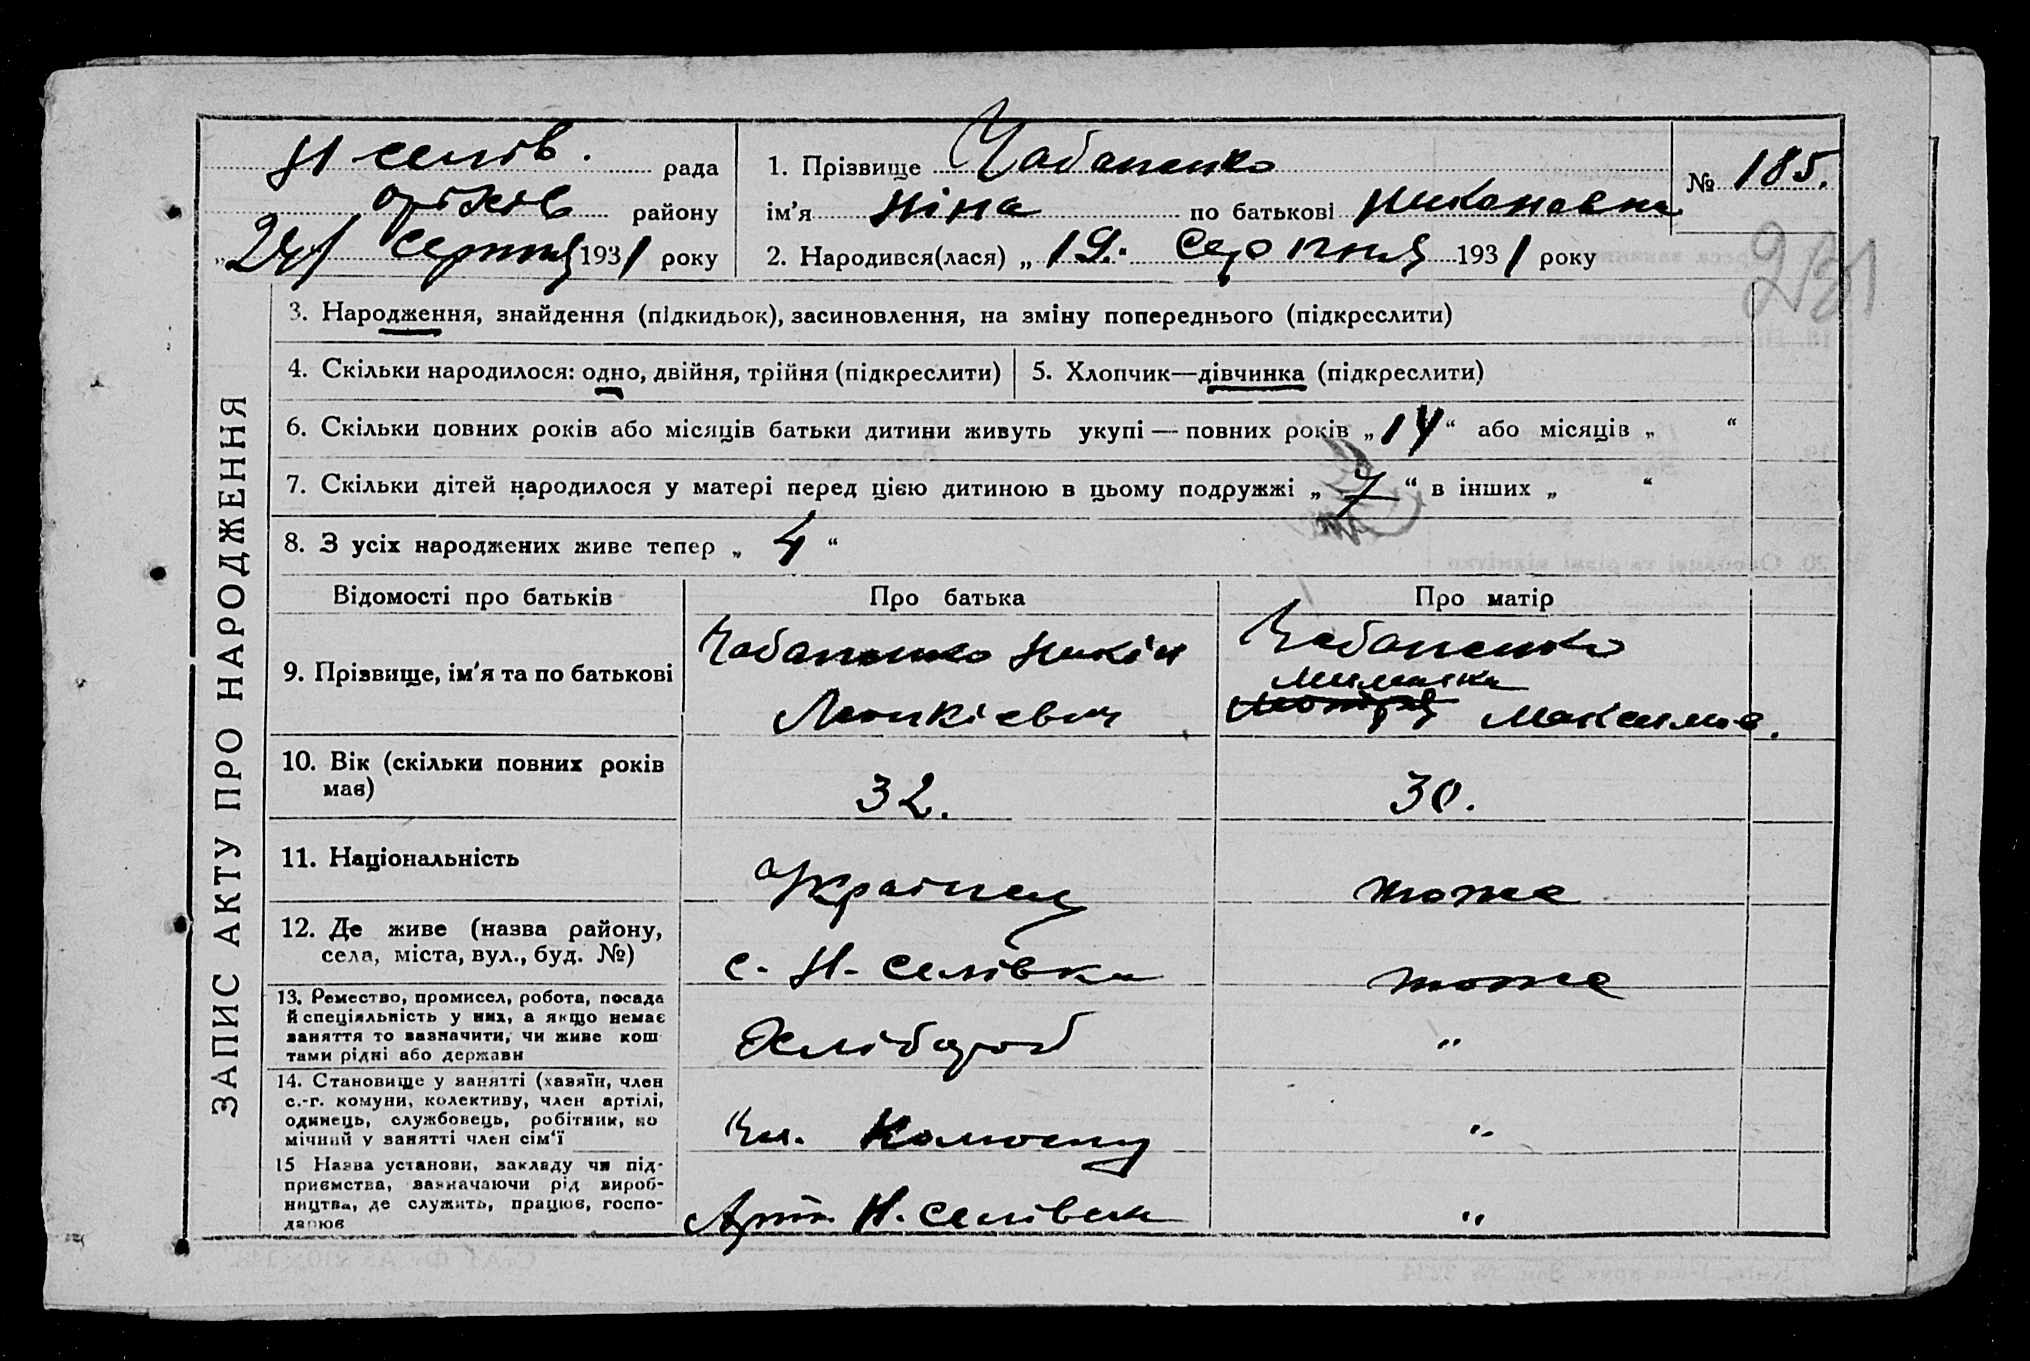 Н селів. рада
оріхів району
„24" серпня 1931 року
1. Прізвище Чабаненко
ім'я Ніна по батькові Никоновна
2. Народився(лася) „19. серпня 1931 року
№ 185.
251
ЗАПИС АКТУ ПРО НАРОДЖЕННЯ
3. Народження, знайдення (підкидьок), засиновлення, на зміну попереднього (підкреслити)
4. Скільки народилося: одно, двійня, трійня (підкреслити)
5. Хлопчик—дівчинка (підкреслити)
6. Скільки повних років або місяців батьки дитини живуть укупі — повних років „14“ або місяців „ “
7. Скільки дітей народилося у матері перед цією дитиною в цьому подружжі „7“ в інших „ “
8. З усіх народжених живе тепер „ 4 “
Відомості про батьків
Про батька
Про матір
9. Прізвище, ім'я та по батькові
Чабаненко Никін
Чабаненко
Максимов.
10. Вік (скільки повних років
має)
32.
30.
11. Національність
Українец
тоже
12. Де живе (назва району,
села, міста, вул., буд. №)
с. Н-селівка
тоже
13. Ремество, промисел, робота, посада
й спеціяльність у них, а якщо немає
заняття то зазначити, чи живе кош
тами рідні або держави
Хлібороб
"
14. Становище у занятті (хазяїн, член
с.-г. комуни, колективу, член артілі,
одинець, службовець, робітник, по
мічний у занятті член сім'ї
Чл. Колгоспу
"
15 Назва установи, закладу чи під-
приємства, зазначаючи рід вироб-
ництва, де служить, працює, госпо-
дарює
Арт. Н. селівка
"